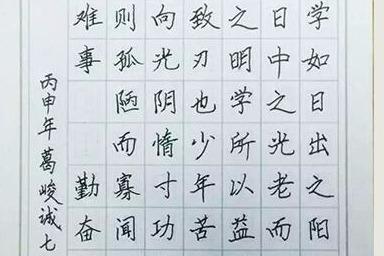 学如日出之阳
日中之光老而
之明学所以益
致刃也少年苦
向光阴惰寸功
则孤陋而寡闻
难事 勤奋
丙申年葛峻诚七